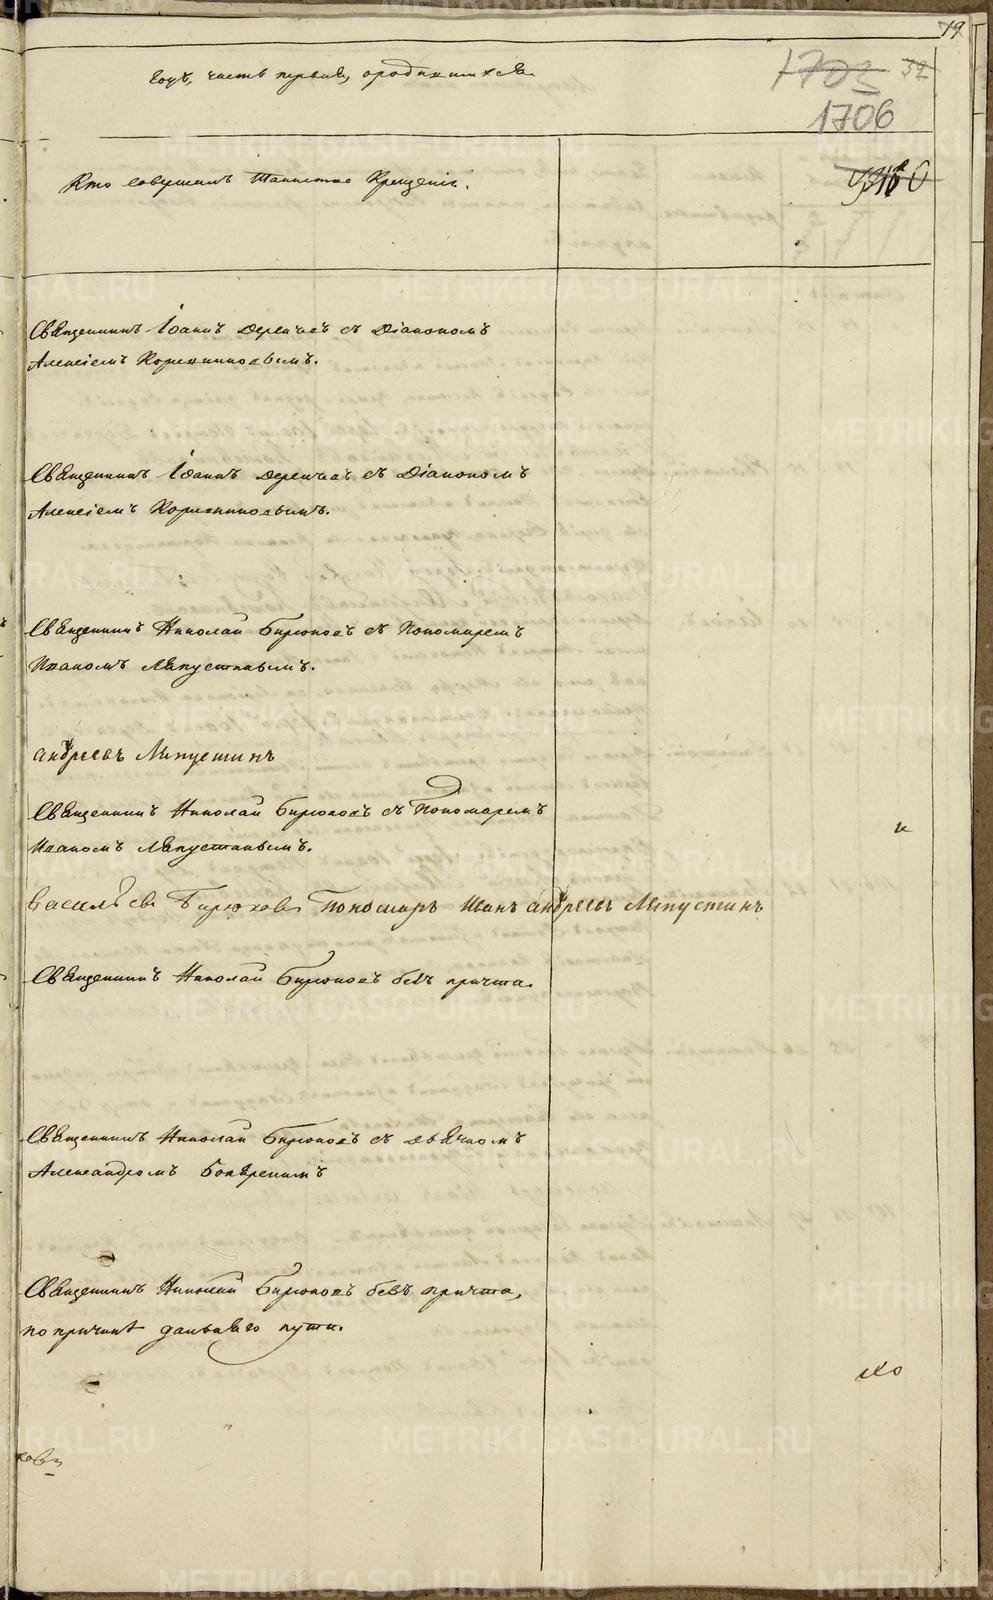 19
годъ, часть первая, о родившихся.
1703 32
1706
Кто совершалъ Таинство Крещенія.
Священникъ Іоаннъ Деренчаевъ съ Діакономъ
Алексіемъ
Священникъ Іоаннъ съ Діакономъ
Алексіемъ
Священникъ Николай Бирюковъ съ Пономаремъ
Иваномъ Ляпустинымъ.
андреевъ Ляпустинъ
Священникъ Николай Бирюковъ съ Пономаремъ
Иваномъ Ляпустинымъ.
Васильевъ Бирюковъ Пономарь Иванъ андреевъ Ляпустинъ
Священникъ Николай Бирюковъ безъ причта.
Священникъ Николай Бирюковъ съ дьячкомъ
Александромъ
Священникъ Николай Бирюковъ безъ причта,
по причинѣ дальняго пути.
ковъ
METRIKI.GASO-URAL.RU